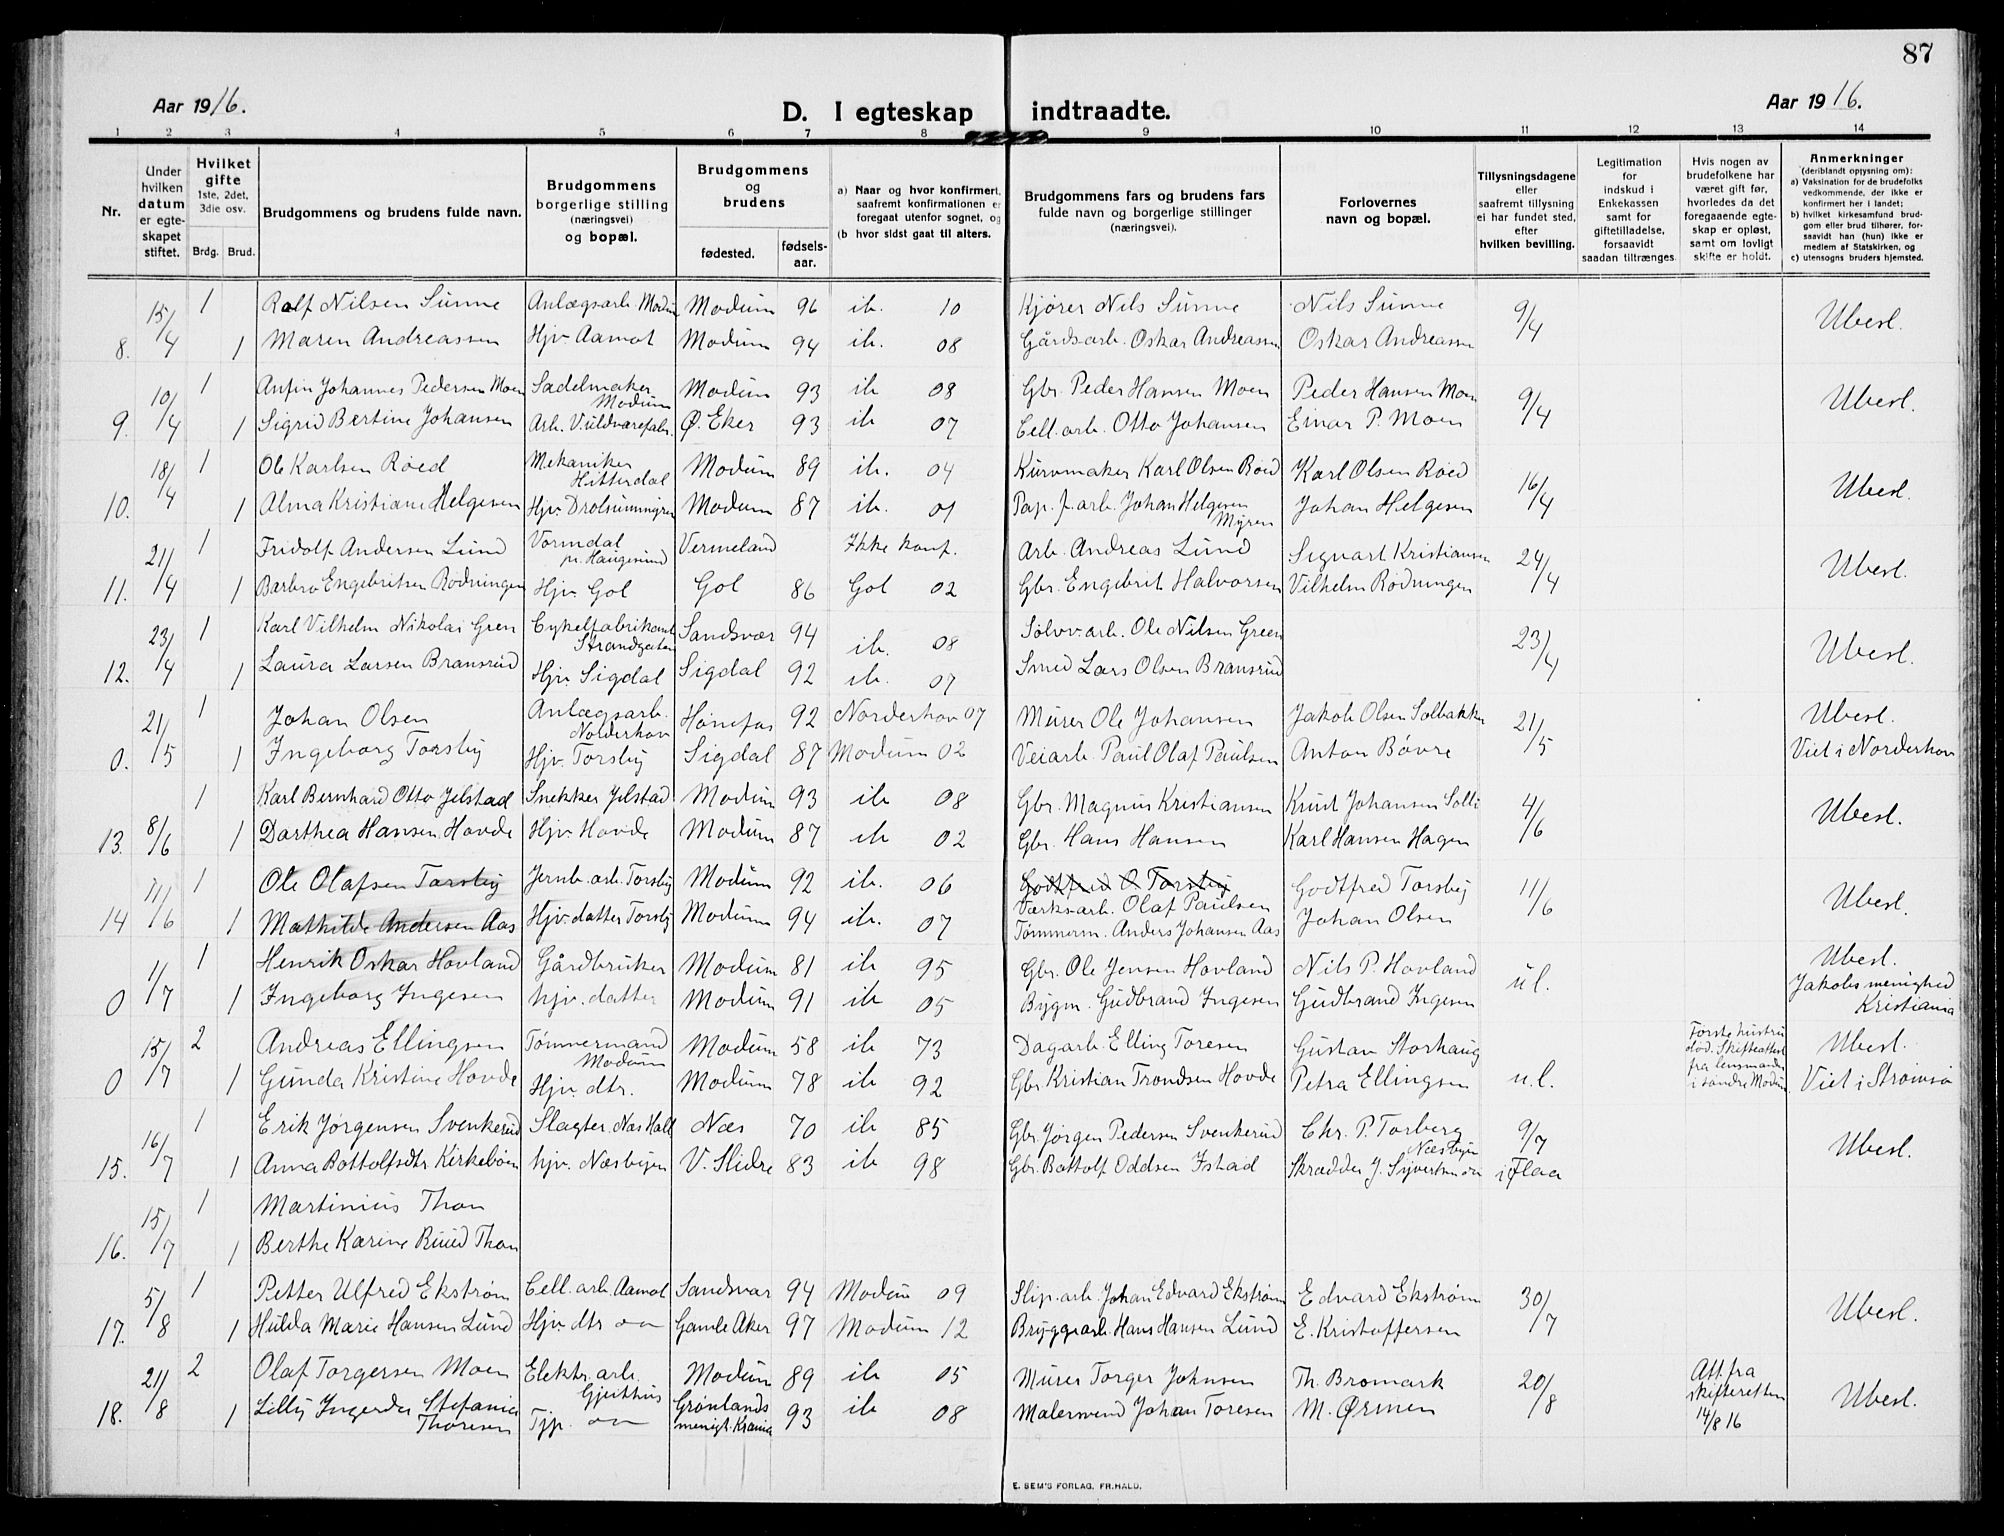 87
Aar 1916.
D. I egteskap indtraadte.
Aar 1916.
1 2 3 4 5 6 7 8 9 10 11 12 13 14
Nr.
Under hvilken datum er egteskapet stiftet.
Hvilket gifte 1ste, 2det, 3die osv.
Brdg. Brud.
Brudgommens og brudens fulde navn.
Brudgommens borgerlige stilling (næringsvei) og bopæl.
Brudgommens og brudens
fødested. fødselsaar.
a) Naar og hvor konfirmert, saafremt konfirmationen er foregaat utenfor sognet, og
(b hvor sidst gaat til alters.
Brudgommens fars og brudens fars fulde navn og borgerlige stillinger (næringsvei).
Forlovernes navn og bopæl.
Tillysningsdagene eller saafremt tillysning ei har fundet sted, efter hvilken bevilling.
Legitimation for indskud i Enkekassen samt for giftetilladelse, forsaavidt saadan tiltrænges.
Hvis nogen av brudefolkene har været gift før, hvorledes da det foregaaende egteskap er opløst, samt om lovligt skifte er holdt.
Anmerkninger (deriblandt opjysning om):
a) Vaksination for de brudefolks vedkommende, der ikke er konfirmert her i landet;
b) hvilket kirkesamfund brudgom eller brud tilhører, forsaavidt han (hun) ikke er medlem af Statskirken, og
c) utensogns bruders hjemsted.
15/4 1 Rolf Nilsen Sunne Anlægsarb. Modum Modum 96 ib. 10 Kjører Nils Sunne Nils Sunne 9/4 Ubesl.
8. 1 Maren Andreassen Hjv. Aamot Modum 94 ib. 08 Gårdsarb. Oskar Andreassen Oskar Andreassen
10/4 1 Anfin Johannes Pedersen Moen Sadelmaker Modum Modum 93 ib 08 Gbr. Peder Hansen Moen Peder Hansen Moen 9/4 Ubesl.
9. 1 Sigrid Bertine Johansen Arb. Vuldvarefabr. Ø. Eker 93 ib 07 Cell. arb. Otto Johansen Einar P. Moen
18/4 1 Ole Karlsen Røed Mekaniker Hitterdal Modum 89 ib. 04 Kurvmaker Karl Olsen Røed Karl Olsen Røed 16/4 Ubesl.
10. 1 Alma Kristiane Helgesen Hjv. Drolsummyren Modum 87 ib. 01 Pap. f. arb. Johan Helgesen Myren Johan Helgesen
21/4 1 Fridolf Andersen Lund Vormdal pr. Haugesund Vermeland Ikke konf. Arb. Andreas Lund Sigvart Kristiansen 24/4 Ubesl.
11. 1 Barbro Engebritsen Rødningen Hjv. Gol Gol 86 Gol 02 Gbr. Engebrit Halvorsen Vilhelm Rødningen
23/4 1 Karl Vilhelm Nikolai Gren Cykelfabrikant Strandgaten Sandsvær 94 ib. 08 Sølvv.arb. Ole Nilsen Green 23/4 Ubesl.
12. 1 Laura Larsen Bransrud Hjv. Sigdal Sigdal 92 ib. 07 Smed Lars Olsen Bransrud
21/5 1 Johan Olsen Anlægsarb. Nolderhov Hønefos 92 Norderhov 07 Murer Ole Johansen Jakob Olsen Solbakken 21/5 Ubesl.
0. 1 Ingeborg Torsby Hjv. Torsby Sigdal 87 Modum 02 Veiarb. Paul Olaf Paulsen Anton Bøvre Viet i Norderhov
8/6 1 Karl Bernhard Otto Jelstad Snekker Jelstad Modum 93 ib 08 Gbr. Magnus Kristiansen Knut Johansen Solli 4/6 Ubesl.
13. 1 Dorthea Hansen Hovde Hjv. Hovde Modum 87 ib 02 Gbr. Hans Hansen Karl Hansen Hagen
11/6 1 Ole Olafsen Torsby Jernb. arb. Torsby Modum 92 ib. 06 Godtfred O Torsby Værksarb. Olaf Paulsen Godtfred Torsby 11/6 Ubesl.
14 1 Mathilde Andersen Aas Hjv. datter Torsby Modum 94 ib. 07 Tømmerm. Anders Johansen Aas Johan Olsen
1/7 1 Henrik Oskar Hovland Gårdbruker Modum 81 ib 95 Gbr. Ole Jensen Hovland Nils P. Hovland u.l. Ubesl.
0 1 Ingeborg Ingesen hjv. datter Modum 91 ib 05 Bygm. Gudbrand Ingesen Gudbrand Ingesen Jakobs menighed Kristiania
15/7 2 Andreas Ellingsen Tømmermand Modum Modum 58 ib 73 Dagarb. Elling Toresen Gustav Storhaug u.l. Første hustru død. Skifteattest fra lensmanden i søndre Modum Ubesl.
0 1 Gunda Kristine Hovde Hjv. dtr. Modum 78 ib 92 Gbr. Kristian Trondsen Hovde Petra Ellingsen Viet i Strømsø
16/7 1 Erik Jørgensen Svenkerud Slagter. Nes Hall Næs 70 ib 85 Gbr. Jørgen Pedersen Svenkerud Chr. P. Torberg Næsbyen 9/7 i Flaa Ubesl.
15. 1 Anna Bottolfsdtr Kirkebøen hjv. Næsbyen V. Slidre 83 ib 98 Gbr. Bottolf Oddsen Istad Skrædder J. Sivertsen
15/7 1 Martinius Thon
16. 1 Berthe Karine Ruud Thon
5/8 1 Petter Ulfred Ekstrøm Cell. arb. Aamot Sandsvær 94 Modum 09 Slip. arb. Johan Edvard Ekstrøm Edvard Ekstrøm 30/7 Ubesl.
17. 1 Hulda Marie Hansen Lund Hjv. dtr Gamle Aker 97 Modum 12 Bryggearb. Hans Hansen Lund E. Kristoffersen
21/8 2 Olaf Torgersen Moen Elektr. arb. Gjethus Modum 89 ib 05 Murer Torger Johnsen Th. Bromark 20/8 Att. fra skifteretten 14/8 16 Ubesl.
18. 1 Lilly Ingerda Stefania Thoresen Tjp. Grønlands menigt. Krania 93 ib 08 Malersvend Johan Toresen M. Ørmen
E. SEM'S FORLAG, FR.HALD.